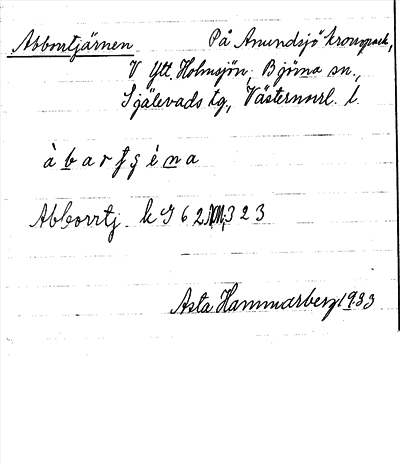 Abborrtjärnen På Anundsjö kronopark,
V Ytt. Holmsjön, Björna sn.,
Själevads tg., Västernorrl. l.
à b a r ʃ ę́ n a
Abborrtj. k J 6 2 323
Asta Hammarberg 1933